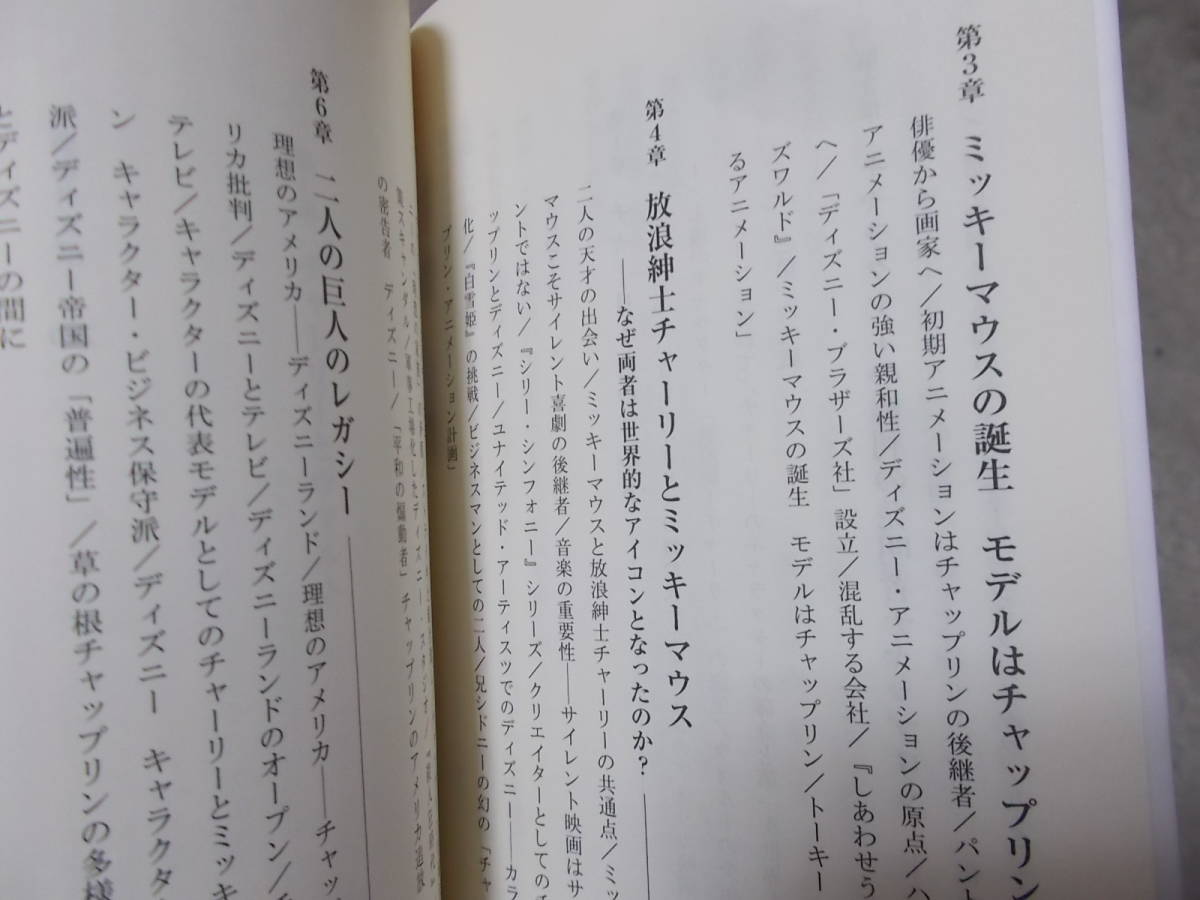 第3章 ミッキーマウスの誕生 モデルはチャップリン
俳優から画家へ/初期アニメーションはチャップリンの後継者/パント
アニメーションの強い親和性/ディズニー・アニメーションの原点/ハ
へ/「ディズニー・ブラザーズ社」設立/混乱する会社/『しあわせう
ズワルド』/ミッキーマウスの誕生 モデルはチャップリン/トーキー
るアニメーション」
第4章 放浪紳士チャーリーとミッキーマウス
——なぜ両者は世界的なアイコンとなったのか?
二人の天才の出会い/ミッキーマウスと放浪紳士チャーリーの共通点/ミッ
マウスこそサイレント喜劇の後継者/音楽の重要性——サイレント映画はサ
ントではない/『シリー・シンフォニー』シリーズ/クリエイターとしてのチ
ップリンとディズニー/ユナイテッド・アーティスツでのディズニー——カラ
化/『白雪姫』の挑戦/ビジネスマンとしての二人/兄シドニーの幻の「チャ
プリン・アニメーション計画」
工場化したディズニー・スタジオ/
「平和の煽動者」チャップリンのアメリカ追放
の密告者 ディズニー/
第6章 二人の巨人のレガシー
理想のアメリカ——ディズニーランド/理想のアメリカ——チャッ
リカ批判/ディズニーとテレビ/ディズニーランドのオープン/
テレビ/キャラクターの代表モデルとしてのチャーリーとミッキ
ン キャラクター・ビジネス保守派/ディズニー キャラクタ
派/ディズニー帝国の「普遍性」/草の根チャップリンの多様
とディズニーの間に